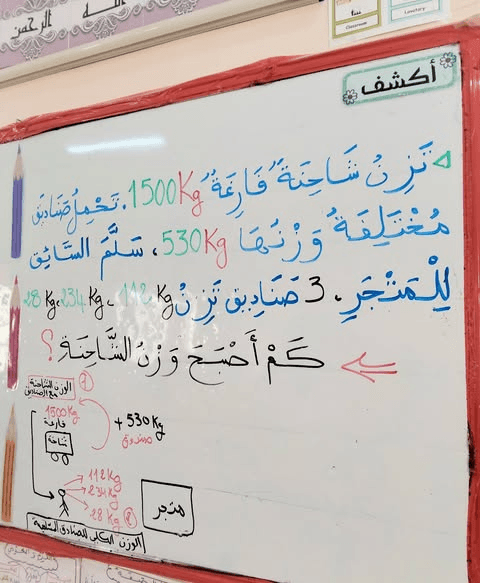 الله الرحمن
Classroom
Lavatory
أكشف
تَزِنُ شَاحِنَةٌ فَارِغَةٌ 1500Kg. تَحْمِلُ صَنَادِيقَ
مُخْتَلِفَةٌ وَزْنُهَا 530Kg، سَلَّمَ السَّائِقُ
لِلْمَتْجَرِ، 3 صَنَادِيق تَزِنُ 112Kg، 234Kg، 28Kg
كَمْ أَصْبَحَ وَزْنُ الشَّاحِنَةِ؟
الوزن الشاحنة
مع الصناديق
1
1500Kg
فارغة
شاحنة
+ 530Kg
صندوق
112Kg
234Kg
28Kg
2
متجر
الوزن الكلي للصنادق المسلمة